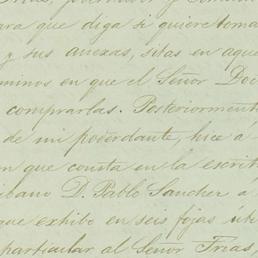 para que diga si quiere toma
y sus anexas, sitas en aque
minos en que el Señor Doc
comprarlas. Posteriorment
de mi poderdante, hice a
en que consta en la escrit
ibano D. Pablo Sanchez a
que exhibo en seis fojas úti
particular al Señor Frias,